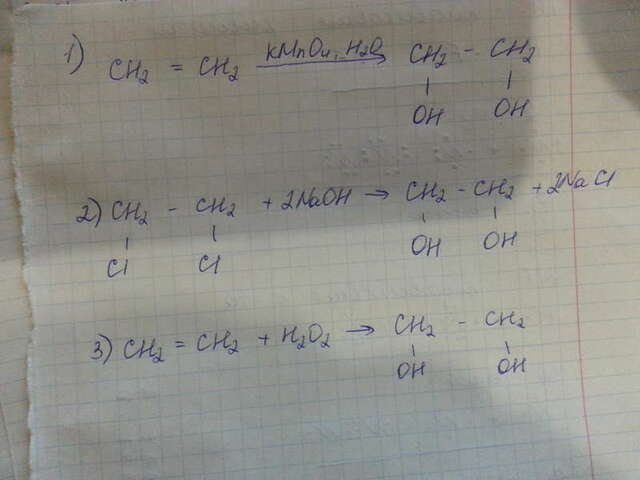 1) CH2 = CH2 KMnO4, H2O → CH2 - CH2
OH OH
2) CH2 - CH2 + 2NaOH → CH2 - CH2 + 2NaCl
Cl Cl OH OH
3) CH2 = CH2 + H2O2 → CH2 - CH2
OH OH